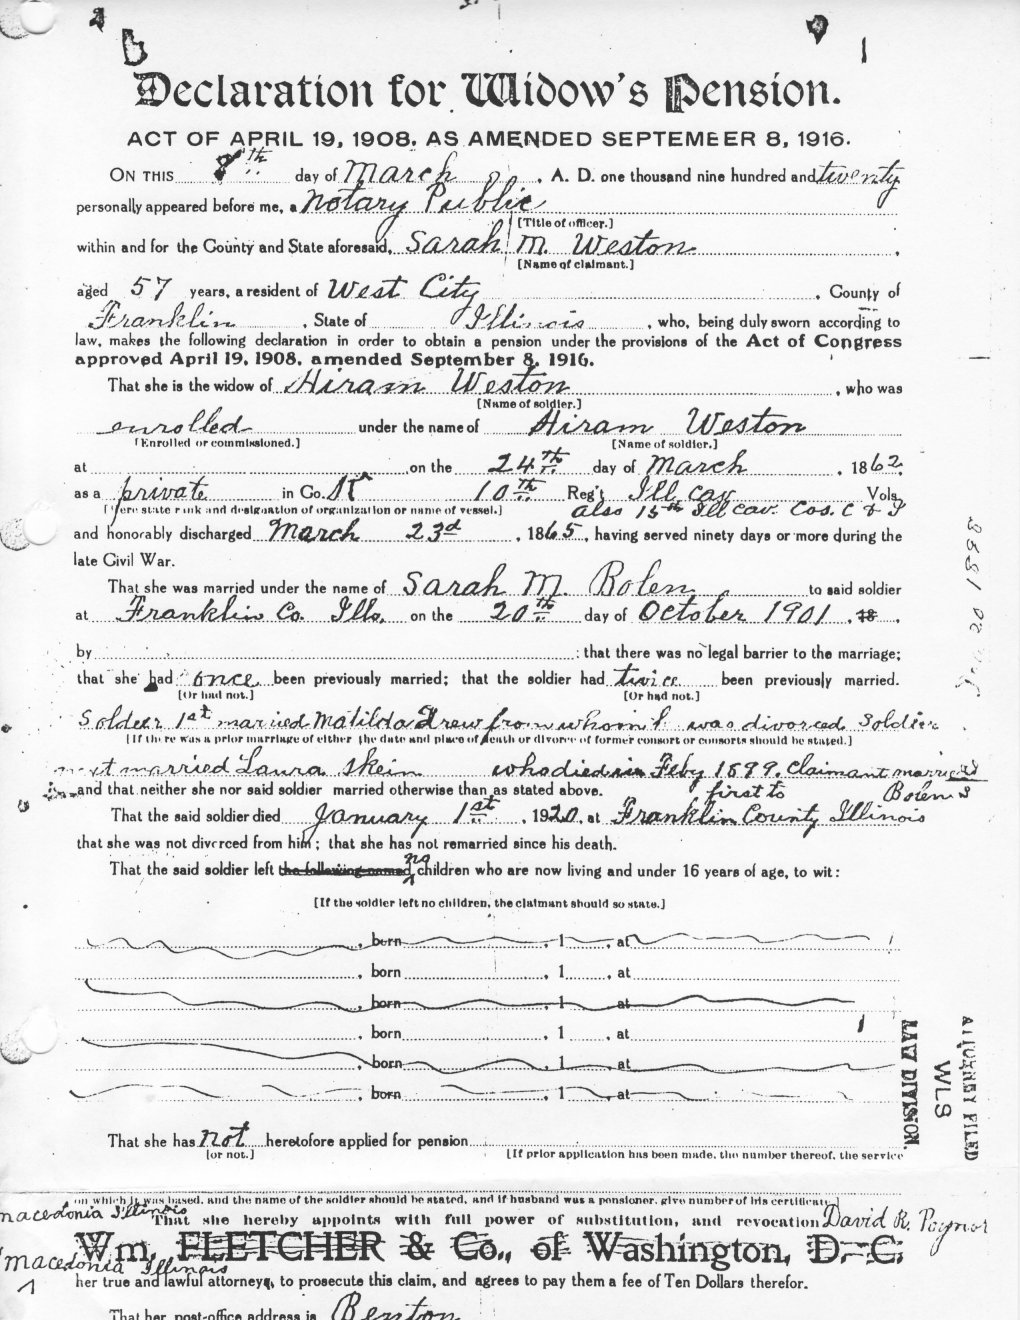 Declaration for Widow's Pension.
ACT OF APRIL 19, 1908, AS AMENDED SEPTEMBER 8, 1916.
ON THIS 8th day of March, A. D. one thousand nine hundred and twenty
personally appeared before me, a Notary Public
[Title of officer.]
within and for the County and State aforesaid, Sarah M. Weston,
[Name of claimant.]
aged 57 years, a resident of West City, County of
Franklin, State of Illinois, who, being duly sworn according to
law, makes the following declaration in order to obtain a pension under the provisions of the Act of Congress
approved April 19, 1908, amended September 8, 1916.
That she is the widow of Hiram Weston, who was
[Name of soldier.]
enrolled under the name of Hiram Weston
[Enrolled or commissioned.] [Name of soldier.]
at on the 24th day of March, 1862,
as a private in Co. K 10th Reg't Ill cav Vols
[Here state rank and designation of organization or name of vessel.] also 15th Ill cav. Cos. C & I
and honorably discharged March 23d, 1865, having served ninety days or more during the
late Civil War.
That she was married under the name of Sarah M. Bolen to said soldier
at Franklin Co. Ills. on the 20th day of October 1901, 18
by : that there was no legal barrier to the marriage;
that she had once been previously married; that the soldier had twice been previously married.
[Or had not.] [Or had not.]
Soldier 1st married Matilda Drew from whom h was divorced Soldier
[If there was a prior marriage of either the date and place of death or divorce of former consort or consorts should be stated.]
next married Laura Skein who died in Feby 1899. Claimant married
and that neither she nor said soldier married otherwise than as stated above. first to Bolen
That the said soldier died January 1st, 1920, at Franklin County Illinois
that she was not divorced from him; that she has not remarried since his death.
That the said soldier left the following named no children who are now living and under 16 years of age, to wit:
[If the soldier left no children, the claimant should so state.]
, born , 1 , at
, born , 1 , at
, born , 1 , at
, born , 1 , at
, born , 1 , at
, born , 1 , at
LAW DIVISION.
WLS
ATTORNEY FILED
That she has not heretofore applied for pension
[or not.] [If prior application has been made, the number thereof, the service
on which it was based, and the name of the soldier should be stated, and if husband was a pensioner, give number of his certificate.]
Macedonia Illinois
That she hereby appoints with full power of substitution, and revocation David R. Paynor
Wm. FLETCHER & Co., of Washington, D. C.
Macedonia Illinois
her true and lawful attorneys, to prosecute this claim, and agrees to pay them a fee of Ten Dollars therefor.
That her post-office address is Benton